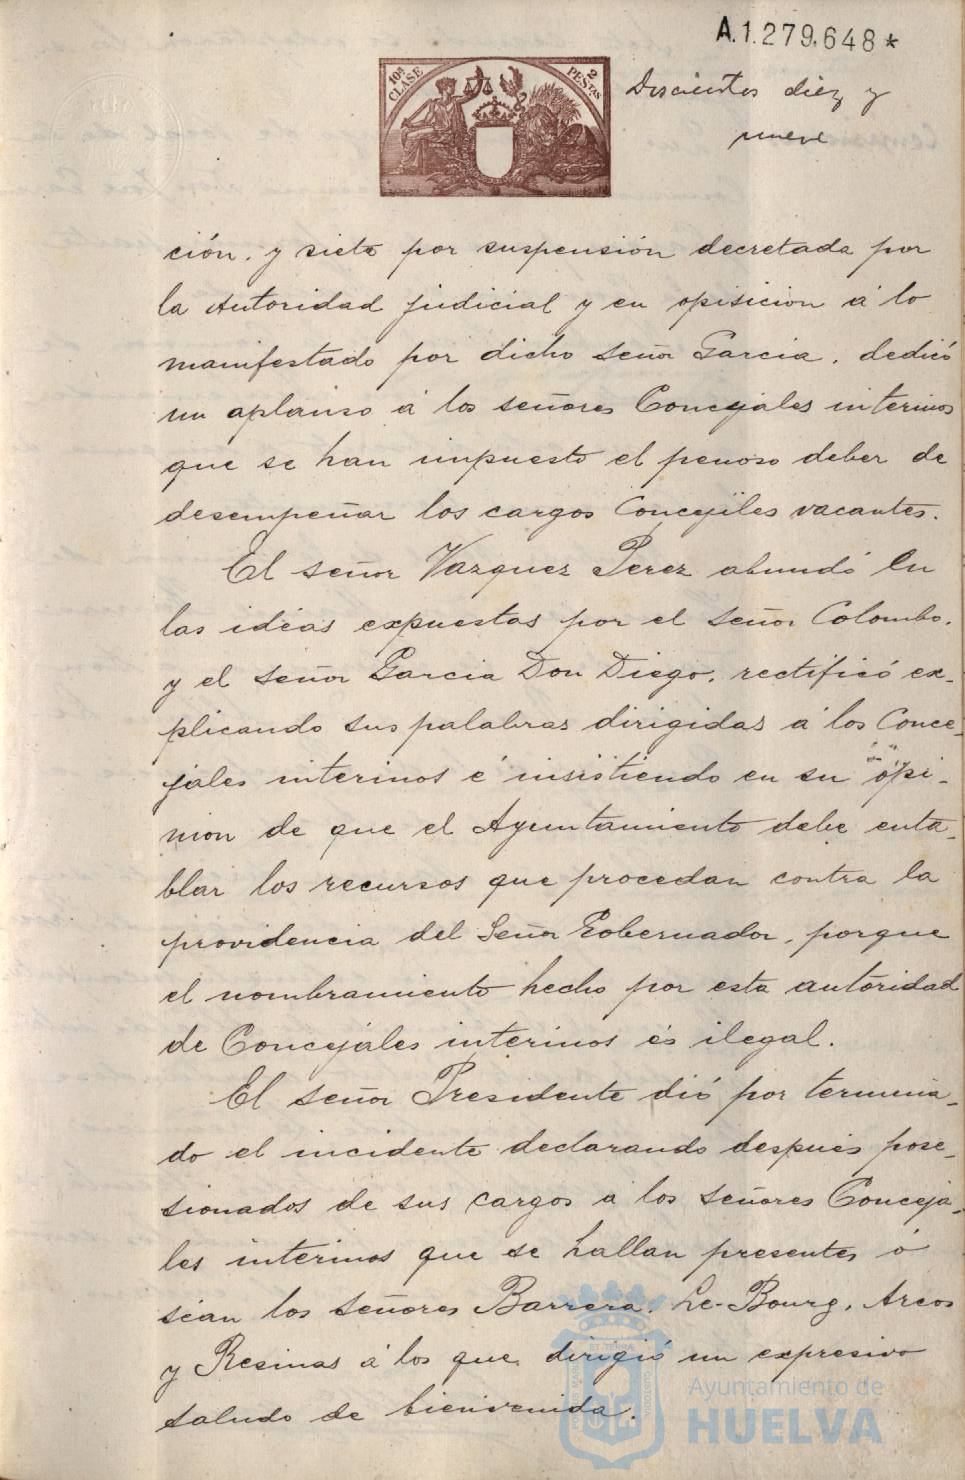 A.1.279.648*
10ª CLASE
2 PESTAS
Doscientos diez y
nueve
ción. y siete por suspensión decretada por
la Autoridad judicial y en opisicion á lo
manifestado por dicho señor Garcia. dedicó
un aplauso á los señores Concejales interinos
que se han impuesto el penoso deber de
desempeñar los cargos Concejiles vacantes.
El señor Vazquez Perez abundó en
las idéas expuestas por el señor Colombo.
y el señor Garcia Don Diego. rectificó ex-
plicando sus palabras dirigidas á los Conce-
jales interinos é insistiendo en su opi-
nion de que el Ayuntamiento debe enta-
blar los recursos que procedan contra la
providencia del Señor Gobernador, porque
el nombramiento hecho por esta autoridad
de Concejales interinos és ilegal.
El señor Presidente dió por termina-
do el incidente declarando después pose-
sionados de sus cargos a los señores Conceja-
les interinos que se hallan presentes ó
séan los señores Barrera. Le-Bourg. Arcos
y Resinas á los que dirigió un expresivo
saludo de bienvenida.
Ayuntamiento de
HUELVA